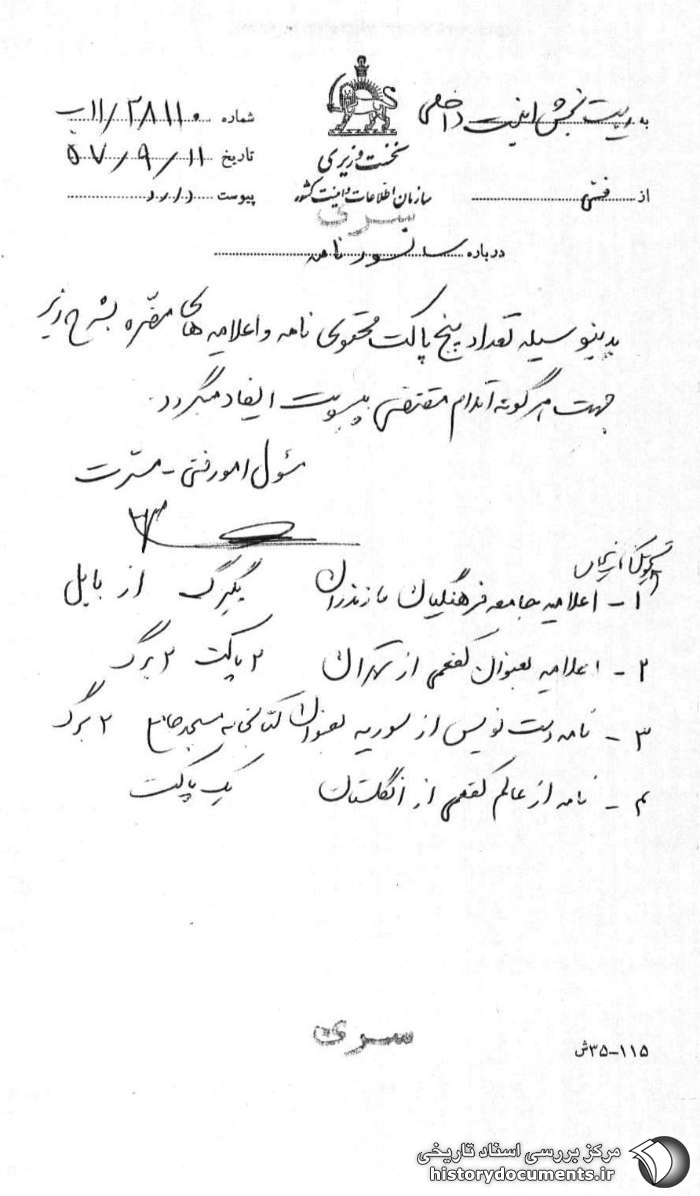 به ریاست بخش امنیت داخلی
شماره ۲۸۱۱۰/۱۱ب
نخست وزیری
تاریخ ۵۷/۹/۱۱
سازمان اطلاعات و امنیت کشور
از فنی
پیوست دارد
سری
درباره سانسور نامه
بدینوسیله تعداد پنج پاکت محتوی نامه و اعلامیه های مضره بشرح زیر
جهت هرگونه اقدام مقتضی بپیوست ایفاد میگردد.
مسئول امور فنی - مسرت
۱- اعلامیه جامعه فرهنگیان مازندران یکبرگ از بابل
۲- اعلامیه بعنوان کفعمی از تهران ۲ پاکت ۲ برگ
۳- نامه دست نویس از سوریه بعنوان کتابخانه مسجد جامع ۲ برگ
۴- نامه از عالم کفعمی از انگلستان یک پاکت
سری
۱۱۵-۳۵ش
مرکز بررسی اسناد تاریخی
historydocuments.ir